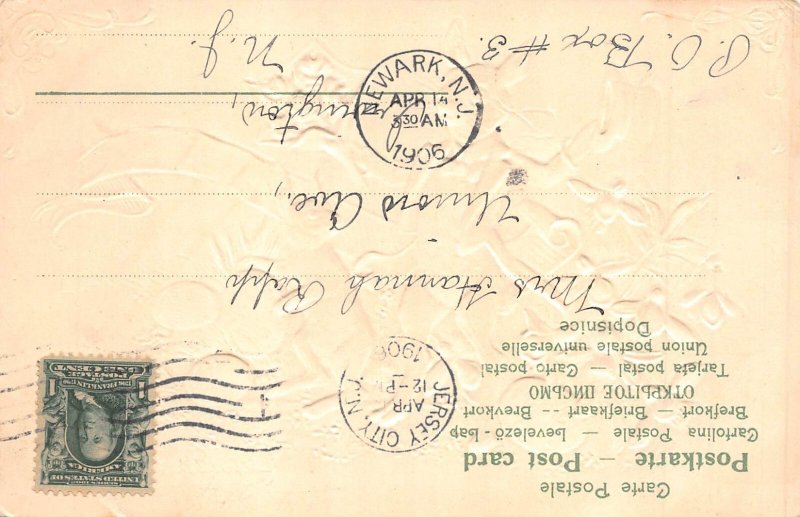 Carte Postale
Postkarte — Post card
Cartolina Postale — Levelező-Lap
Brefkort — Briefkaart -- Brevkort
ОТКРЫТОЕ ПИСЬМО
Tarjeta postal — Carto postal
Union postale universelle
Dopisnice
JERSEY CITY, N.J.
APR
12-PM
1906
SERIES 1902
UNITED STATES OF AMERICA
1
FRANKLIN
POSTAGE
ONE CENT
Mrs Hannah Rapp
Union Ave.,
Irvington,
N. J.
P. O. Box #3.
NEWARK, N.J.
APR 14
3 30 AM
1906